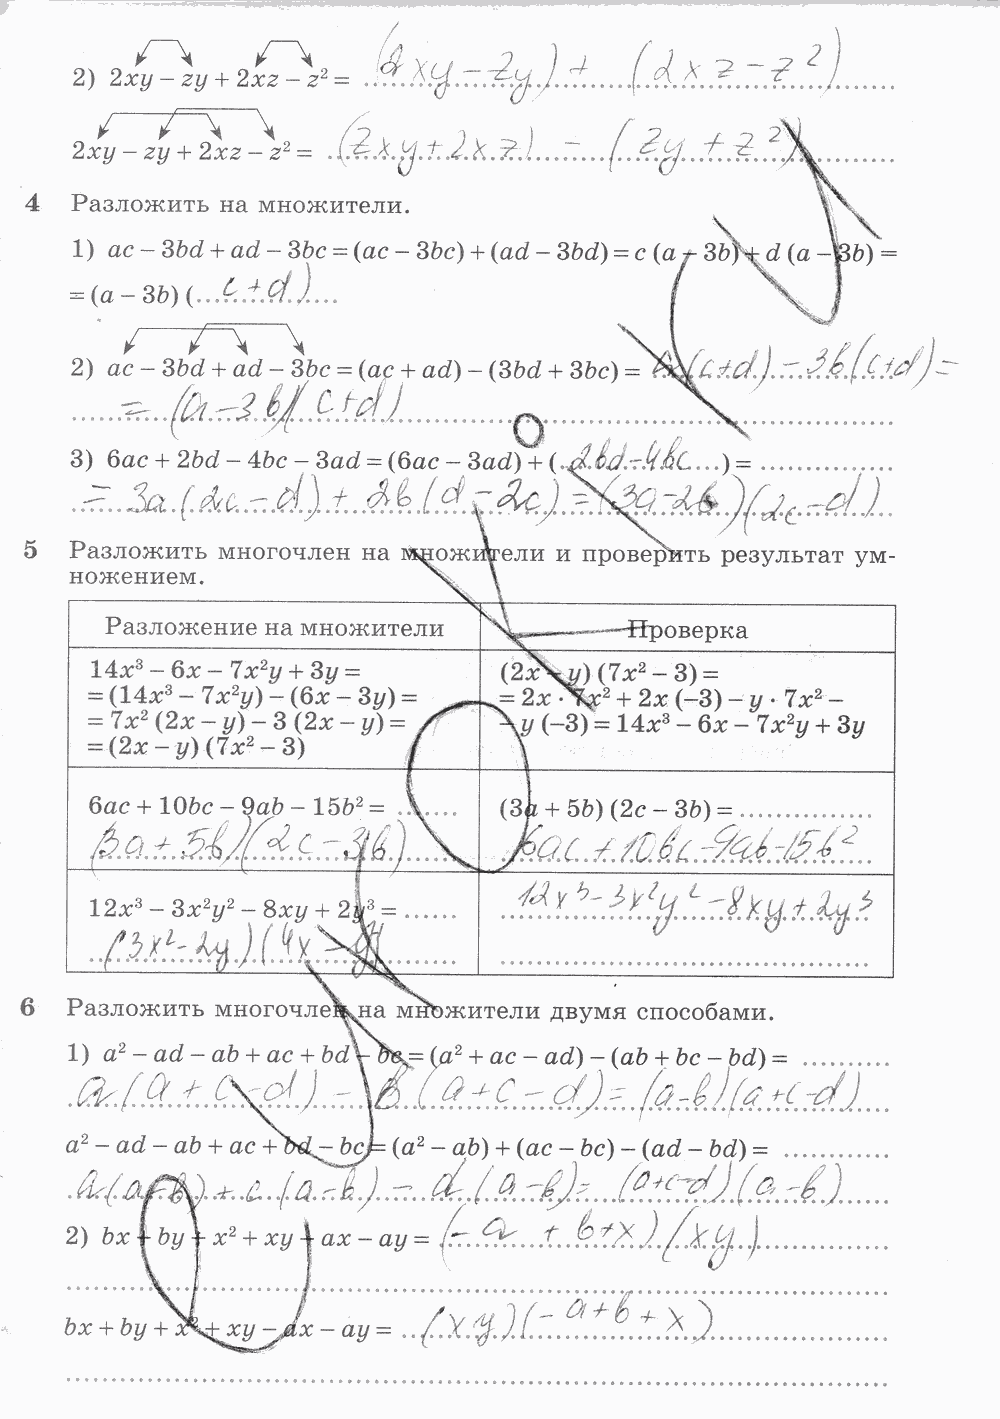 2) 2xy − zy + 2xz − z² = (2xy − zy) + (2xz − z²)
2xy − zy + 2xz − z² = (2xy + 2xz) − (zy + z²)
4 Разложить на множители.
1) ac − 3bd + ad − 3bc = (ac − 3bc) + (ad − 3bd) = c (a − 3b) + d (a − 3b) =
= (a − 3b) (c + d)
2) ac − 3bd + ad − 3bc = (ac + ad) − (3bd + 3bc) = a(c+d) − 3b(c+d) =
= (a − 3b)(c+d)
3) 6ac + 2bd − 4bc − 3ad = (6ac − 3ad) + (2bd − 4bc) =
= 3a(2c − d) + 2b(d − 2c) = (3a − 2b)(2c − d)
5 Разложить многочлен на множители и проверить результат ум-
ножением.
Разложение на множители Проверка
14x³ − 6x − 7x²y + 3y =
= (14x³ − 7x²y) − (6x − 3y) =
= 7x² (2x − y) − 3 (2x − y) =
= (2x − y) (7x² − 3)
(2x − y) (7x² − 3) =
= 2x · 7x² + 2x (−3) − y · 7x² −
− y (−3) = 14x³ − 6x − 7x²y + 3y
6ac + 10bc − 9ab − 15b² =
(3a + 5b)(2c − 3b)
(3a + 5b) (2c − 3b) =
6ac + 10bc − 9ab − 15b²
12x³ − 3x²y² − 8xy + 2y³ =
(3x² − 2y)(4x −
12x³ − 3x²y² − 8xy + 2y³
6 Разложить многочлен на множители двумя способами.
1) a² − ad − ab + ac + bd − bc = (a² + ac − ad) − (ab + bc − bd) =
a(a + c − d) − b(a + c − d) = (a − b)(a + c − d)
a² − ad − ab + ac + bd − bc = (a² − ab) + (ac − bc) − (ad − bd) =
a(a − b) + c(a − b) − d(a − b) = (a + c − d)(a − b)
2) bx + by + x² + xy − ax − ay = (−a + b + x)(xy)
bx + by + x² + xy − ax − ay = (xy)(−a + b + x)